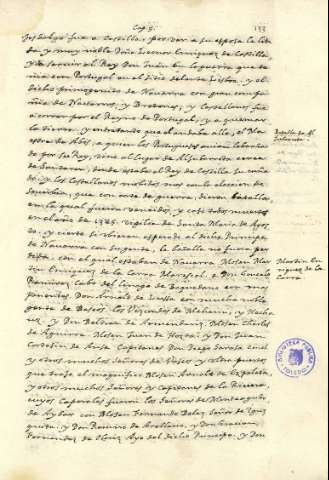 Cap. 9.
153
despues fue a Castilla, por ver a su esposa la lin
da, y muy noble Doña Leonor Enriquez de Castilla,
y da servir al Rey Don Juan en la guerra que te
nia con Portugal en el sitio de la de Lisboa. y el
dicho primogenito de Navarra con gran compa
ñia de Navarros, y Bretones, y Castellanos fue
a correr por el Reyno de Portugal, y a quemar
la tierra, y entretanto que el andaba alla, el Ma
estre de Abis, a quien los Portugueses avian lebantado
por su Rey, vino al lugar de Aljubarrota cerca
de Santaren, donde estaba el Rey de Castilla su cuña
do, y los Castellanos movidos mas con la elacion de
soberbia, que con arte de guerra, dieron batalla,
en la qual fueron vencidos, y casi todos muertos
en el año de 1385. vigilia de Santa Maria de Agos
to, y cierto si obieran esperado al dicho Principe
de Navarra con su gente, la batalla no fuera per
dida. con el qual estaban de Navarra Mosen Mar
tin Enriquez de la Carra Marizal, e Don Gonzalo
Ramirez Cabo del linage de Baquedano con mas
parientes. Don Arnalt de Lusa con mucha noble
gente de Bascos. los Vizcondes de Meharin, y Macha
ya. y Don Beltran de Armendariz. Mosen Charlos
de Aguirre. Mosen Juan de Hosta. y Don Juan
Corbaran de Ansa Capitanes. Don Diego Garcia
y otros muchos Señores de Vascos y otra gente
que traia el magnifico Mosen Arnalt de Ezpeleta,
y otros muchos Señores y Capitanes de la Ribera,
cuyos Caporales fueron los Señores del Monteagudo,
de Ayvar con Mosen Fernando Señor de
Don Ramiro de Arellano, y Don Gracian
Fernandez de Ayo del dicho Principe. y Don
Batalla de Al
jubarrota.
Martin En
riquez de la
Carra.
BIBLIOTECA PUBLICA
TOLEDO